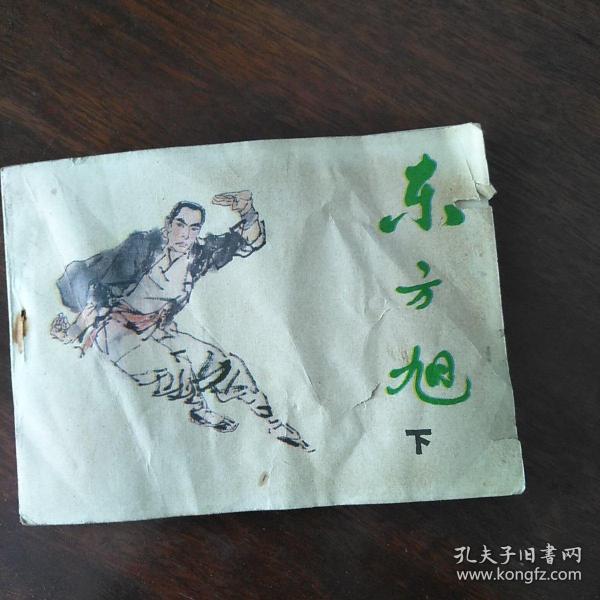 东方旭
下
孔夫子旧書网
www.kongfz.com